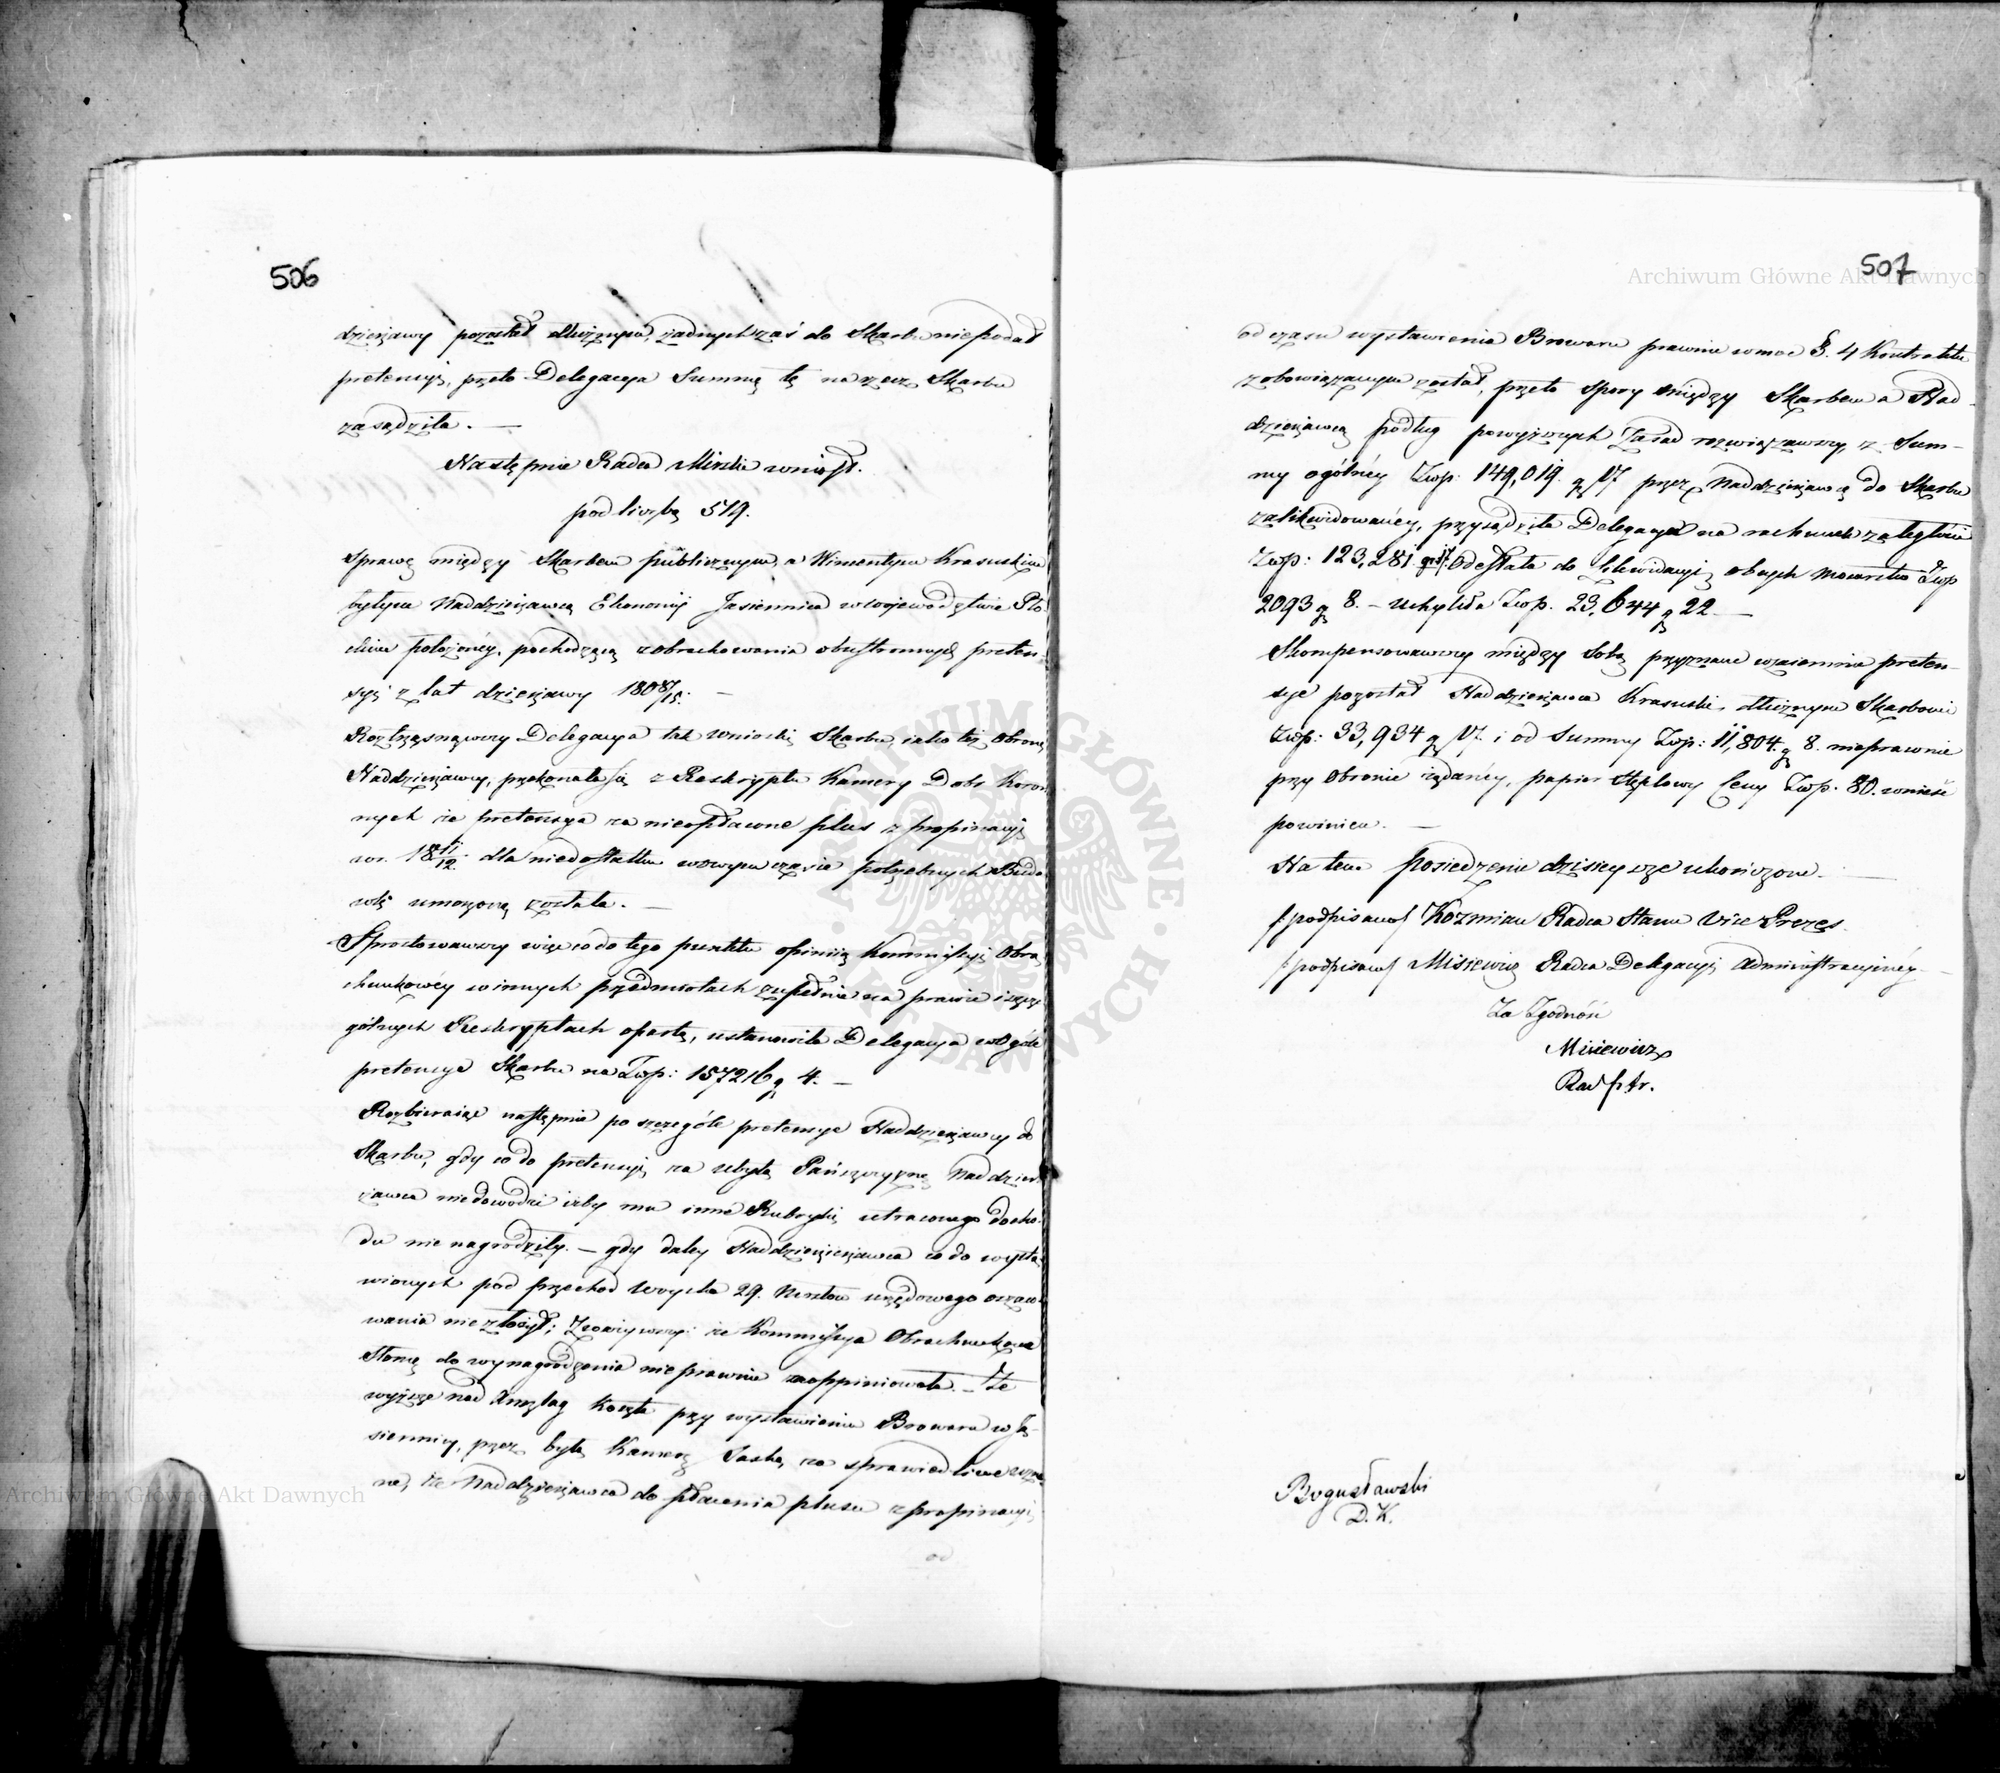 506
dzierżawy pozostał dłużnym, żadnych zaś do Skarbu nie podał
pretensyi, przeto Delegacya Summę tę na rzecz Skarbu
zasądziła. —
Następnie Radca Mirski wniósł.
pod liczbą 519.
Sprawę między Skarbem publicznym, a Wincentym Krasuskim
byłym Naddzierżawcą Ekonomij Jasiennica w Wojewodztwie Pło
ckim położonéy, pochodzącą z obrachowania obustronnych preten-
syi z lat dzierżawy
Roztrząsnąwszy Delegacya tak wnioski Skarbu, iako też obronę
Naddzierżawcy, przekonała się z Reskryptu Kamery Dobr Koron
nych że pretensya za nieopłacone plus z propinacyi
w r. 18 11/12. dla niedostatku w owym czasie potrzebnych Budo
wli umorzoną została. —
Sprostowawszy więc co do tego punktu opinią Kommissyi Obra
chunkowéy w innych przedmiotach zupełnie na prawie i szcze
gólnych Reskryptach opartą, ustanowiła Delegacya w ogóle
pretensye Skarbu na Złp: 157216 g 4. —
Rozbieraiąc następnie po szczególe pretensye Naddzierżawcy do
Skarbu, gdy co do pretensyi za ubyłą Pańszczyznę Naddzier
żawca niedowodzi iżby mu inne Rubryki utraconego docho-
du nie nagrodziły. — gdy daley Naddzierżawca co do wysta
wionych pod przechod woyska 29. urzędowego oszaco
wania nie złożył; Zważywszy: że Kommissya Obrachunkowa
Słomę do wynagrodzenia nieprawnie zaoppiniowała. — Że
wyższe nad Anszlag koszta przy wystawieniu Browaru w Ja-
siennicy, przez byłą Kamerę Saską, za sprawiedliwe uzna
ne, że Naddzierżawca do płacenia plusu z propinacyi
od
507
od czasu wystawienia Browaru prawnie w moc §. 4 Kontraktu
zobowiązanym został, przeto spory między Skarbem a Nad-
dzierżawcą podług powyższych Zasad rozwiązawszy, z Sum-
my ogólnéy Złp: 149,019. g 17 przez Naddzierżawcę do Skarbu
zalikwidowanéy, przysądziła Delegacya na rachunek zaległości
Złp: 123,281. gr 17. Odesłała do Likwidacyi obcych mocarstw Złp
2093 g 8. – uchyliła Złp. 23,644 g 22. —
Skompensowawszy między sobą przyznane wzaiemnie preten-
sye pozostał Naddzierżawca Krasuski, dłużnym Skarbowi
Złp: 33,934 g 17. i od Summy Złp: 11,804. g 8. nieprawnie
przy Obronie żądanéy, papier stęplowy Ceny Złp. 80. wnieść
powinien. —
Na tem posiedzenie dzisieysze ukończone. —
/podpisano/ Koźmian Radca Stanu Vice Prezes.
/podpisano/ Misiewicz Radca Delegacyi Administracyinéy. —
Za Zgodność
Misiewicz
Bogusławski
D.K.
Archiwum Główne Akt Dawnych
Archiwum Główne Akt Dawnych
ARCHIWUM GŁÓWNE AKT DAWNYCH